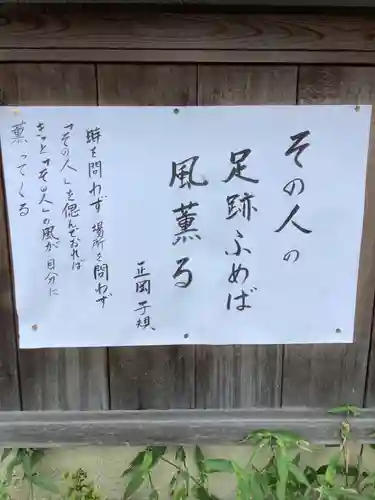 その人の
足跡ふめば
風薫る
正岡子規
時を問わず 場所を問わず
「その人」を偲んでおれば
きっと「その人」の風が自分に
薫ってくる